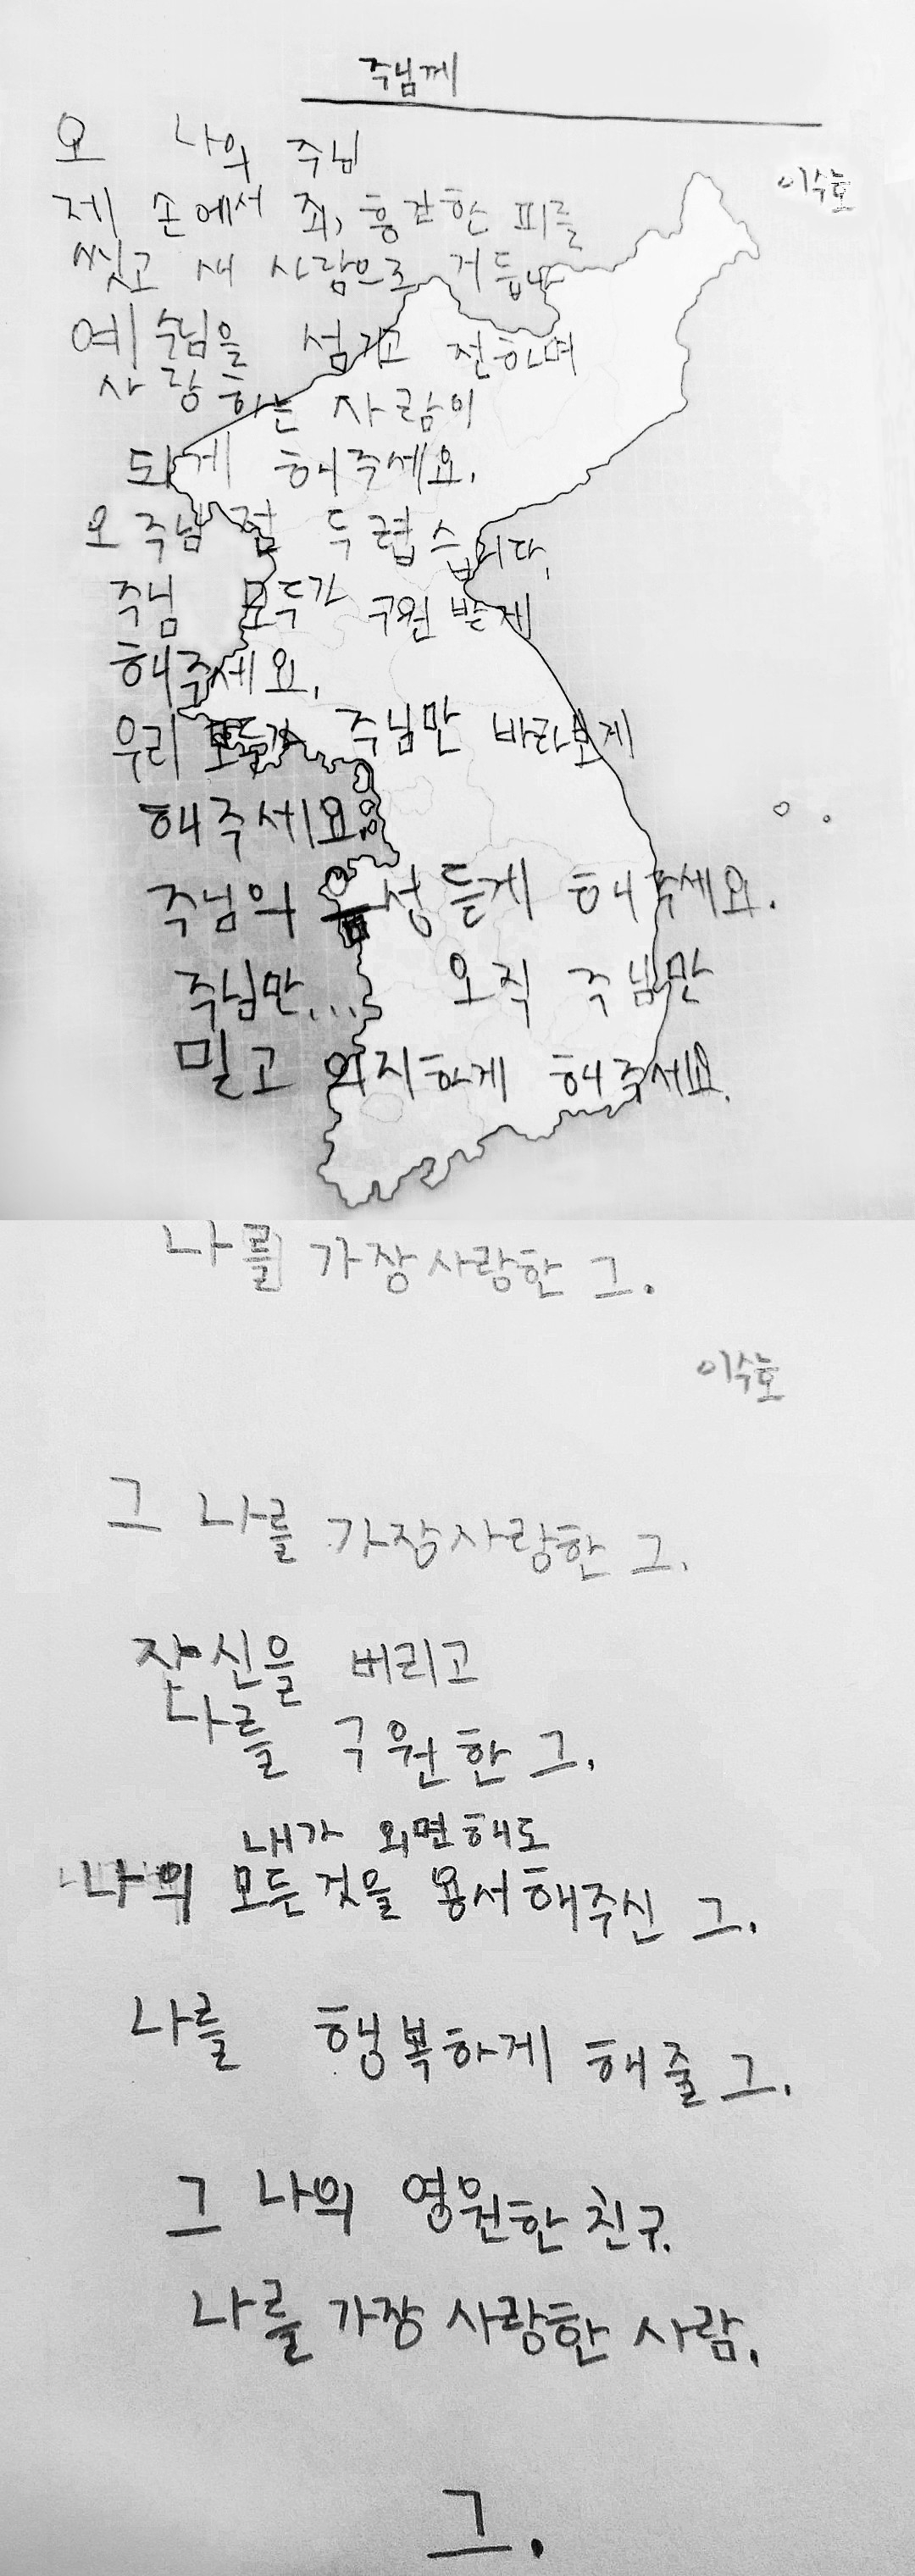 주님께
이수호
오 나의 주님
제 손에서 죄, 흥건한 피를
씻고 새 사람으로 거듭나
예수님을 섬기고 전하며
사랑하는 사람이
되게 해주세요.
오 주님 전 두렵습니다.
주님 모두가 구원 받게
해주세요.
우리 모두가 주님만 바라보게
해주세요.
주님의 음성 듣게 해주세요.
주님만... 오직 주님만
믿고 의지하게 해주세요.
나를 가장 사랑한 그.
이수호
그 나를 가장 사랑한 그.
자신을 버리고
나를 구원한 그.
내가 외면해도
나의 모든것을 용서해주신 그.
나를 행복하게 해줄 그.
그 나의 영원한 친구.
나를 가장 사랑한 사람.
그.